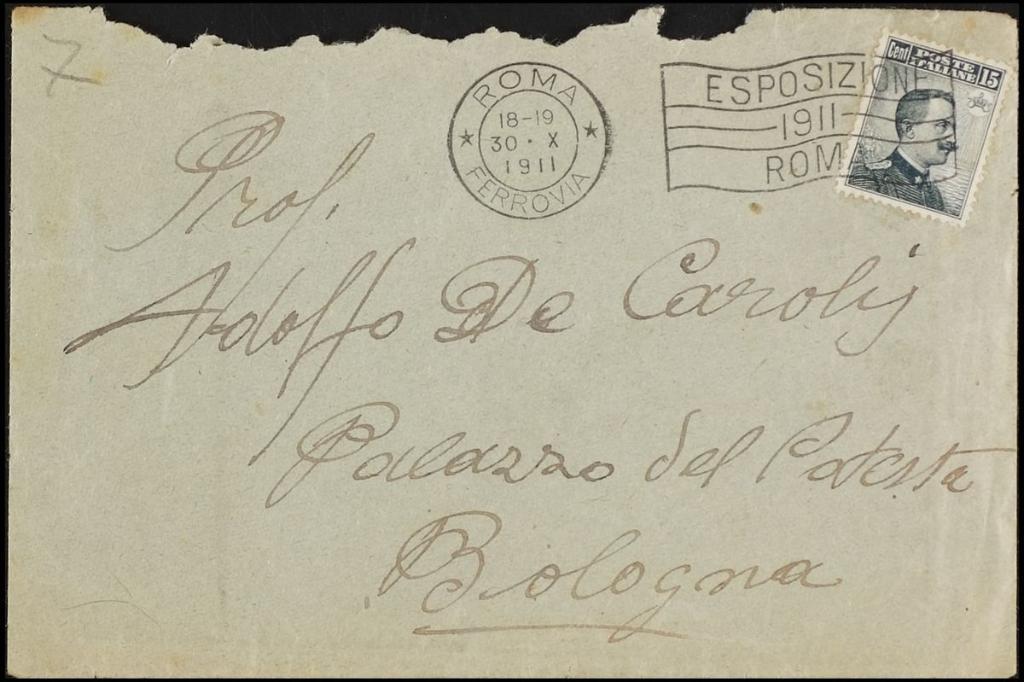 7
ROMA
18-19
30 · X
1911
FERROVIA
ESPOSIZIONE
1911
ROMA
Cent POSTE ITALIANE 15
Prof.
Adolfo De Carolis
Palazzo del Podestà
Bologna